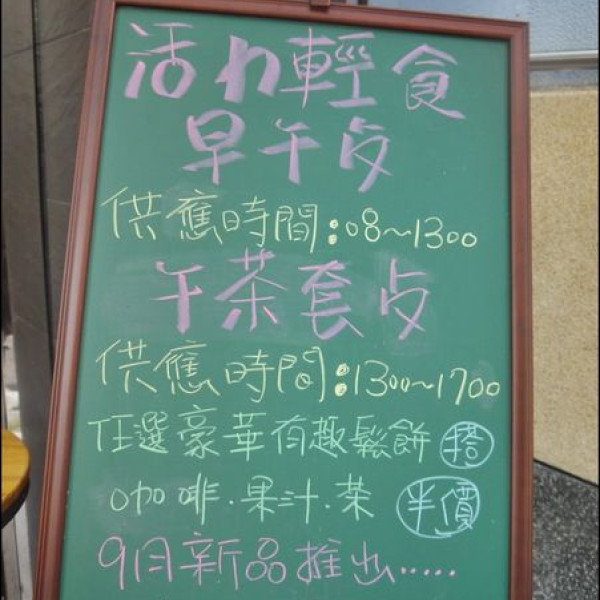 活力輕食
早午点
供應時間:08~1300
午茶套点
供應時間:1300~1700
任選豪華有趣鬆餅 搭
咖啡.果汁.茶 半價
9月新品推出.....